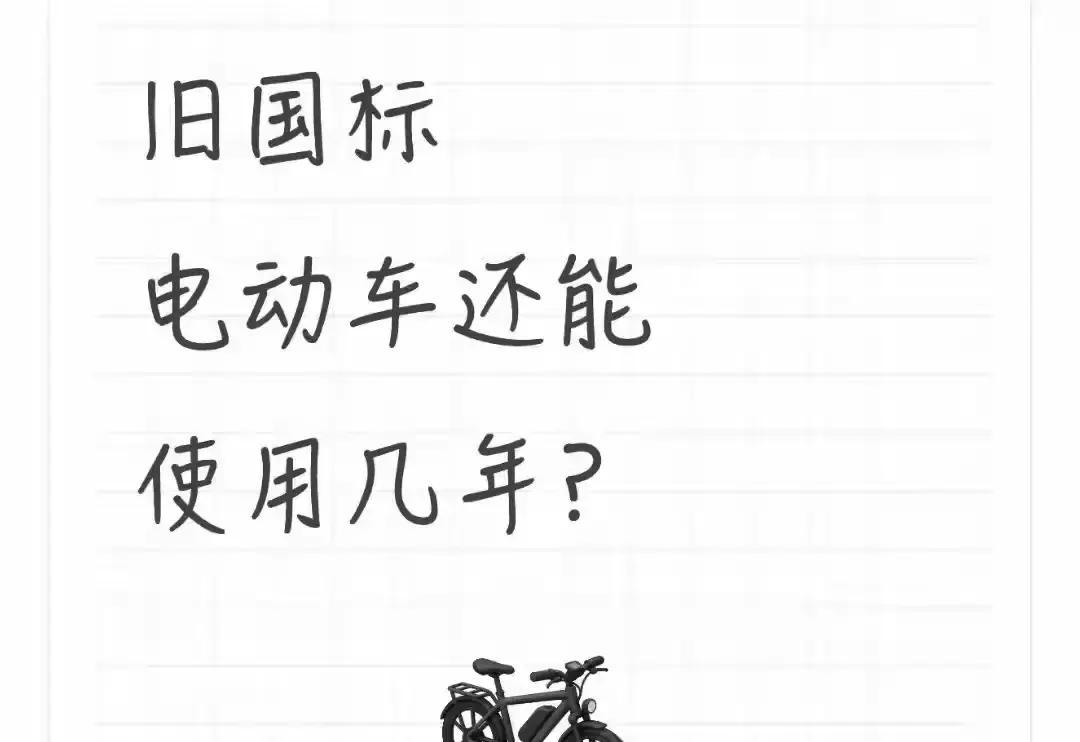 旧国标
电动车还能
使用几年?